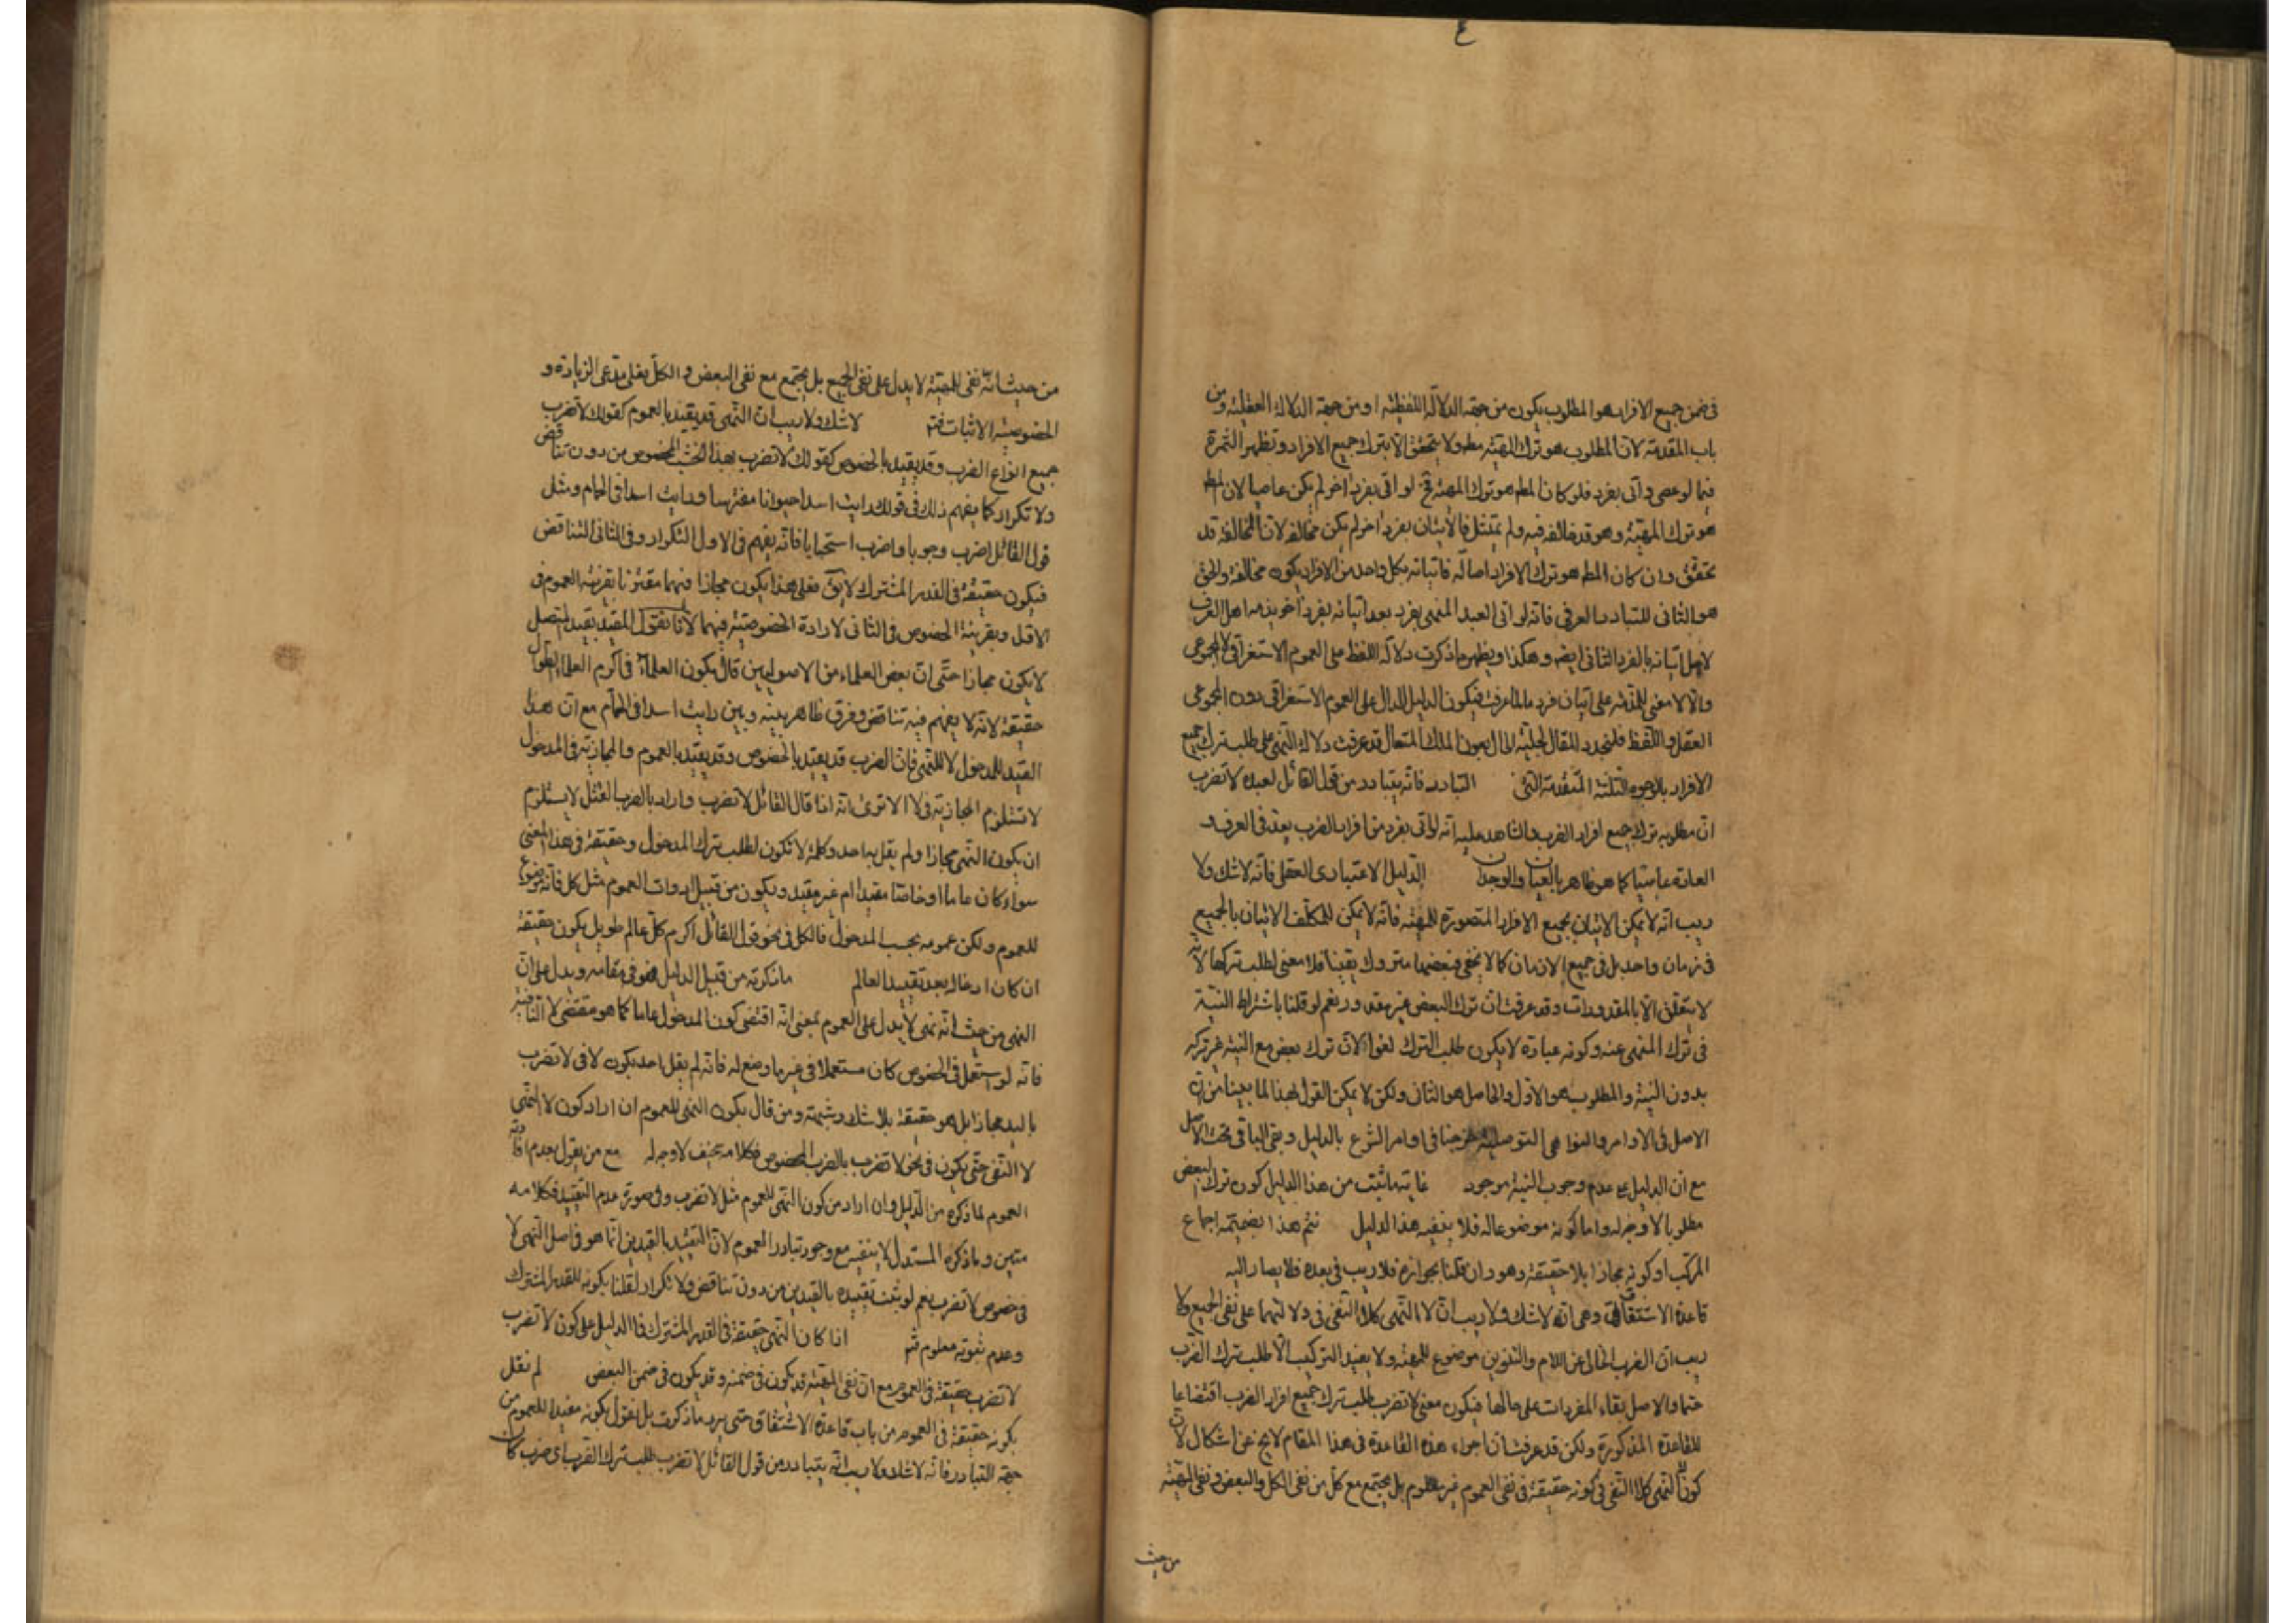 ٤
في ضمن جميع الافراد هو المطلوب يكون من جهة الدلالة اللفظية او من جهة الدلالة العقلية ومن
باب المقدمة لان المطلوب هو ترك المهيّة مط ولا يتحقق الا بترك جميع الافراد وتظهر الثمرة
فيما لو عصى واتى بفرد فلو كان المط هو ترك المهيّة فح لو اتى بفرد اخر لم يكن عاصيا لان المط
هو ترك المهيّة وهو قد خالفه فيه ولم يمتثل فالاتيان بفرد اخر لم يكن مخالفة لان المخالفة قد
تحقق وان كان المط هو ترك الافراد اصالة فاتيانه بكل واحد من الافراد يكون مخالفة والحق
هو الثاني للتبادر العرفي فانه لو اتى العبد المنهى بفرد بعد اتيانه بفرد اخر يذمه اهل العرف
لاجل اتيانه بالفرد الثاني ايضه وهكذا ويظهر ما ذكرت دلالة اللفظ على العموم الاستغراقي لا المجموعي
والا لا معنى للمذمة على اتيان فرد ما لما عرفت فيكون الدليل الدال على العموم الاستغراقي دون المجموعي
العقل واللفظ فلنجدد المقال لجلية الحال بعون الملك المتعال قد عرفت دلالة النهي على طلب ترك جميع
الافراد بالوجوه الثلثة المتقدمة التي التبادر فانه يتبادر من قول القائل لعبده لا تضرب
ان مطلوبه ترك جميع افراد الضرب والشاهد عليه انه لو اتى بفرد من افراد الضرب يعد في العرف و
العادة عاصيا كما هو ظاهر بالعيان والوجدان الدليل الاعتباري العقلي فانه لا شك ولا
ريب انه لا يمكن الاتيان بجميع الافراد المتصورة للمهيّة فانه لا يمكن للمكلف الاتيان بالجميع
في زمان واحد بل في جميع الازمان كما لا يخفى فبعضها متروك يقينا فلا معنى لطلب تركها لانه
لا يتعلق الا بالمقدورات وقد عرفت ان ترك البعض غير مقدور نعم لو قلنا باشتراط النية
في ترك المنهى عنه وكونه عبادة لا يكون طلب الترك لغوا لان ترك بعض مع النية غير تركه
بدون النية والمطلوب هو الاول والحاصل هو الثاني ولكن لا يمكن القول بهذا لما بينا من ان
الاصل في الاوامر والنواهي التوصلية خرجنا في اوامر الشرع بالدليل وبقي الباقي تحت الاصل
مع ان الدليل على عدم وجوب النية موجود غاية ما ثبت من هذا الدليل كون ترك البعض
مطلوبا لا وجه له واما كونه موضوعا له فلا ينفيه هذا الدليل نتم هذا بضميمة اجماع
المركب او كونه مجازا بلا حقيقة وهو وان قلنا بجوازه فلا ريب في بعده فلا يصار اليه
قاعدة الاشتقاق وهي انه لا شك ولا ريب ان لا النهي كلا النفي في دلالتهما على نفي الجميع ولا
ريب ان الضرب الخالي عن اللام والتنوين موضوع للمهيّة ولا يفيد التركيب الا طلب ترك الضرب
حتما والاصل بقاء المفردات على حالها فيكون معنى لا تضرب طلب ترك جميع افراد الضرب اقتضاءا
للقاعدة المذكورة ولكن قد عرفت ان اجراء هذه القاعدة في هذا المقام لا يخ عن اشكال لان
كون لا النهي كلا النفي في كونه حقيقة في نفي العموم غير معلوم بل يجتمع مع كل من نفي الكل والبعض ونفي المهيّة
من حيث
من حيث انه نفي المهيّة لا يدل على نفي الجميع بل يجتمع مع نفي البعض والكل فعلى مدعى الزيادة و
الخصوصية الاثبات فتم لا شك ولا ريب ان النهي قد يقيد بالعموم كقولك لا تضرب
جميع انواع الضرب وقد يقيد بالخصوص كقولك لا تضرب بهذا الخشب المخصوص من دون تناقض
ولا تكرار كما يفهم ذلك في قولك رايت اسدا حيوانا مفترسا ورايت اسدا في الحمام ومثل
قول القائل اضرب وجوبا واضرب استحبابا فانه يفهم في الاول التكرار وفي الثاني التناقض
فيكون حقيقة في القدر المشترك لا يق فعلى هذا يكون مجازا فيهما مقترنا بقرينة العموم في
الاول وبقرينة الخصوص في الثاني لارادة الخصوصية فيهما لانا نقول المقيد بقيد المتصل
لا يكون مجازا حتى ان بعض العلماء من الاصوليين قال بكون العلماء في اكرم العلماء الطوال
حقيقة لانه لا يفهم فيه تناقض وفرق ظاهر بينه وبين رايت اسدا في الحمام مع ان هذا
القيد للمدخول لا للنهي فان الضرب قد يقيد بالخصوص وقد يقيد بالعموم والمجازية في المدخول
لا تستلزم المجازية في لا الا ترى انه اذا قال القائل لا تضرب واراد بالضرب القتل لا يستلزم
ان يكون النهي مجازا ولم يقل به احد وكلمة لا تكون لطلب ترك المدخول وحقيقة في هذا المعنى
سواء كان عاما او خاصا مقيدا ام غير مقيد ويكون من قبيل ادوات العموم مثل كل فانه موضوع
للعموم ولكن عمومه بحسب المدخول فالكل في نحو قول القائل اكرم كل عالم طويل يكون حقيقة
ان كان ادخاله بعد تقييد العالم ما ذكرته من قبيل الدليل هو في مقامه ويدل على ان
النهي من حيث انه نهى لا يدل على العموم بمعنى انه اقتضى كون المدخول عاما كما هو مقتضى لا النافية
فانه لو استعمل في الخصوص كان مستعملا في غير ما وضع له فانه لم يقل احد بكون لا في لا تضرب
باليد مجازا بل هو حقيقة بلا شك وشبهة ومن قال بكون النهي للعموم ان اراد كون لا النهي
لا النفي حتى يكون في نحو لا تضرب بالضرب المخصوص فكلامه سخيف لا وجه له مع من يقول بعدم افادته
العموم لما ذكره من الدليل وان اراد من كون النهي للعموم مثل لا تضرب وفي صورة عدم التقييد فكلامه
متين وما ذكره المستدل لا ينفيه مع وجود تبادر العموم لان التقييد بالقيدين انما هو في اصل النهي لا
في خصوص لا تضرب نعم لو ثبت تقييده بالقيدين من دون تناقض ولا تكرار لقلنا بكونه للقدر المشترك
وعدم ثبوته معلوم فتم اذا كان النهي حقيقة في القدر المشترك فما الدليل على كون لا تضرب
لا تضرب حقيقة في العموم مع ان نفي المهيّة قد يكون في ضمنه وقد يكون في ضمن البعض لم نقل
بكونه حقيقة في العموم من باب قاعدة الاشتقاق حتى يرد ما ذكرت بل نقول بكونه مفيدا للعموم من
جهة التبادر فانه لا شك ولا ريب انه يتبادر من قول القائل لا تضرب طلب ترك الضرب اي ضرب كان